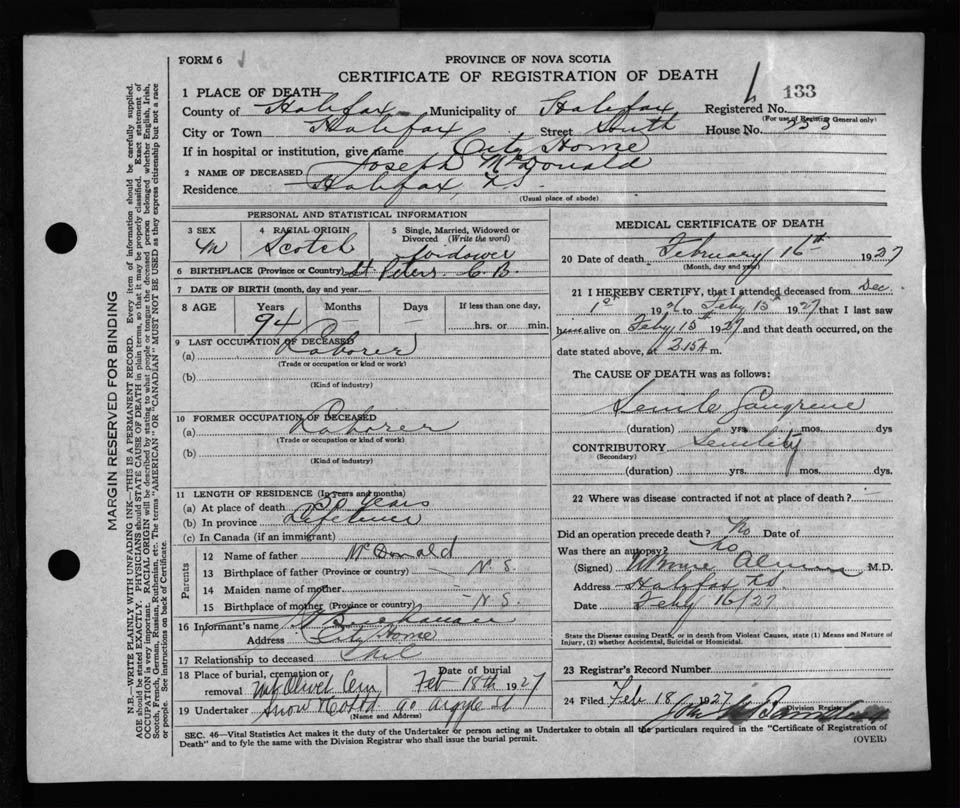 FORM 6
PROVINCE OF NOVA SCOTIA
CERTIFICATE OF REGISTRATION OF DEATH
133
1 PLACE OF DEATH
County of Halifax Municipality of Halifax Registered No.
(For use of Registrar General only)
City or Town Halifax Street South House No.
If in hospital or institution, give name City Home
2 NAME OF DECEASED Joseph McDonald
Residence Halifax, N.S.
(Usual place of abode)
PERSONAL AND STATISTICAL INFORMATION
3 SEX
M
4 RACIAL ORIGIN
Scotch
5 Single, Married, Widowed or Divorced (Write the word)
Widower
6 BIRTHPLACE (Province or Country) St. Peters C.B.
7 DATE OF BIRTH (month, day and year)
8 AGE Years Months Days If less than one day,
94 hrs. or min.
9 LAST OCCUPATION OF DECEASED
(a) Laborer
(Trade or occupation or kind of work)
(b)
(Kind of industry)
10 FORMER OCCUPATION OF DECEASED
(a) Laborer
(Trade or occupation or kind of work)
(b)
(Kind of industry)
11 LENGTH OF RESIDENCE (In years and months)
(a) At place of death 30 years
(b) In province Lifetime
(c) In Canada (if an immigrant)
Parents
12 Name of father McDonald
13 Birthplace of father (Province or country) N.S.
14 Maiden name of mother
15 Birthplace of mother (Province or country) N.S.
16 Informant's name
Address City Home
17 Relationship to deceased
18 Place of burial, cremation or removal Mt Olivet Cem
Date of burial
Feb 18th 1927
19 Undertaker Snow & Co Ltd 90 Argyle St
(Name and Address)
MEDICAL CERTIFICATE OF DEATH
20 Date of death February 16th 1927
(Month, day and year)
21 I HEREBY CERTIFY, that I attended deceased from Dec.
1st 1926 to Feby 15th 1927 that I last saw
him alive on Feby 15 1927 and that death occurred, on the
date stated above, at 2.15 A m.
The CAUSE OF DEATH was as follows:
Senile Gangrene
(duration) yrs. mos. dys
CONTRIBUTORY Senility
(Secondary)
(duration) yrs. mos. dys.
22 Where was disease contracted if not at place of death?
Did an operation precede death? No Date of
Was there an autopsy? No
(Signed) M.D.
Address Halifax N.S.
Date Feby 16/27
State the Disease causing Death, or in death from Violent Causes, state (1) Means and Nature of Injury, (2) whether Accidental, Suicidal or Homicidal.
23 Registrar's Record Number
24 Filed Feb 18 1927
Division Registrar
SEC. 46—Vital Statistics Act makes it the duty of the Undertaker or person acting as Undertaker to obtain all the particulars required in the "Certificate of Registration of
Death" and to fyle the same with the Division Registrar who shall issue the burial permit.
(OVER)
MARGIN RESERVED FOR BINDING
N.B.—WRITE PLAINLY WITH UNFADING INK—THIS IS A PERMANENT RECORD. Every item of information should be carefully supplied.
AGE should be stated EXACTLY. PHYSICIANS should STATE CAUSE OF DEATH in plain terms, so that it may be properly classified. Exact statement of
OCCUPATION is very important. RACIAL ORIGIN will be described by stating to what people or tongue the deceased person belonged whether English, Irish,
Scotch, French, German, Russian, Ruthenian, etc. The terms "AMERICAN" OR "CANADIAN" MUST NOT BE USED as they express citizenship but not a race
or people. See instructions on back of Certificate.